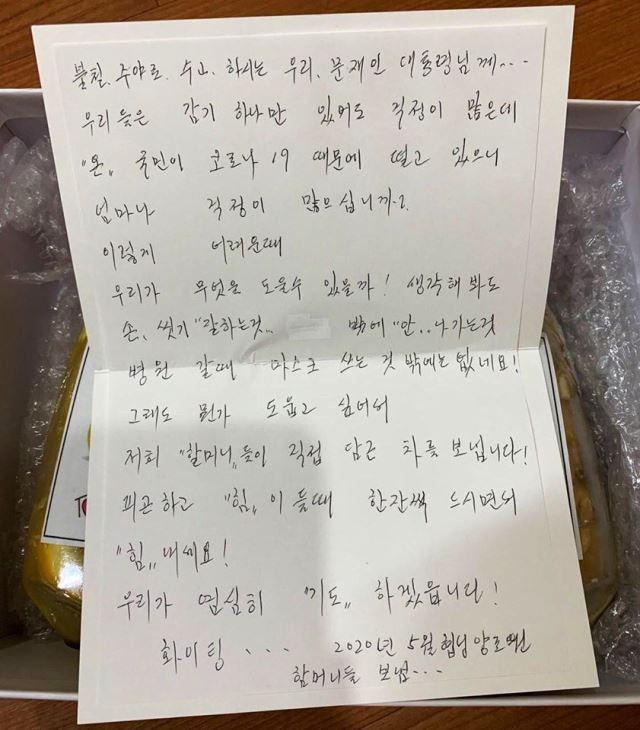 불철, 주야로, 수고, 하시는 우리, 문재인 대통령님께...
우리들은 감기 하나만 있어도 걱정이 많은데
"온„ 국민이 코로나 19 때문에 떨고 있으니
얼마나 걱정이 많으십니까?
이렇게 어려운때
우리가 무엇을 도울수 있을까! 생각해 봐도
손, 씻기 "잘하는것.. 밖에 "안..나가는것
병원 갈때 마스크 쓰는 것 밖에는 없네요!
그래도 뭔가 돕고 싶어서
저희 "할머니„들이 직접 담근 차를 보냅니다!
피곤하고 "힘„이 들때 한잔씩 드시면서
"힘„ 내세요!
우리가 열심히 "기도„ 하겠읍니다!
화이팅 ... 2020년 5월 양로원
할머니들 보냄...